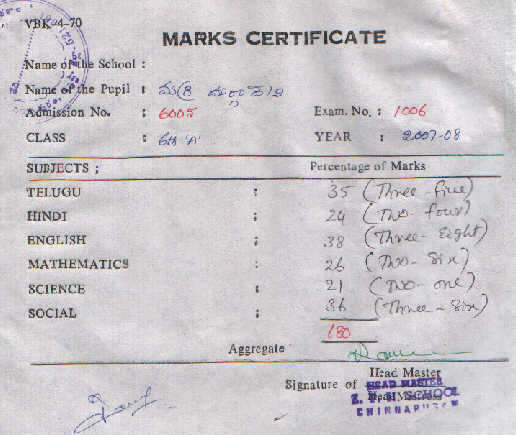 VBK-4-70
MARKS CERTIFICATE
Name of the School :
Name of the Pupil :
Admission No. : 6005 Exam. No. : 1006
CLASS : 6th 'A' YEAR : 2007-08
SUBJECTS ; Percentage of Marks
TELUGU : 35 (Three-five)
HINDI : 24 (Two-four)
ENGLISH ; 38 (Three-Eight)
MATHEMATICS : 26 (Two-Six)
SCIENCE : 21 (Two-one)
SOCIAL ; 36 (Three-Six)
Aggregate 180
Head Master
Signature of HEAD MASTER
Z. P. H. SCHOOL
CHINNAPURAM